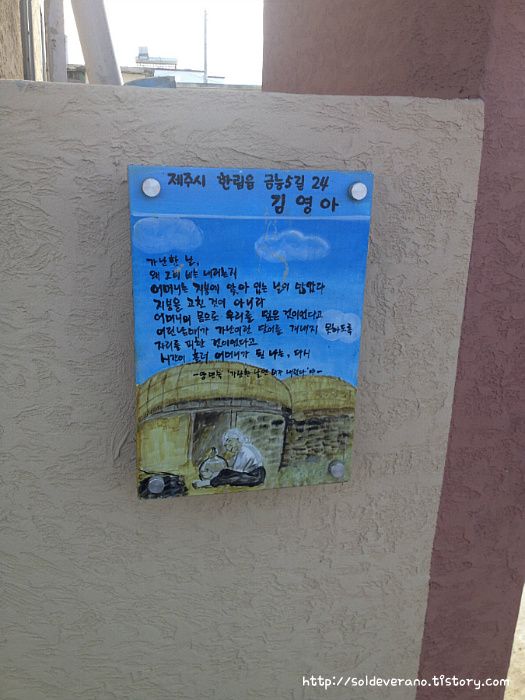 제주시 한림읍 금능5길 24
김영아
가난한 날,
왜 그리 비는 내리는지
어머니는 지붕에 앉아 있는 날이 많았다
지붕을 고친 것이 아니라
어머니의 몸으로 우리를 덮은 것이었다고
어린 남매가 가난이란 단어를 깨내지 못하도록
자리를 피한 것이었다고
시간이 흘러 어머니가 된 나는, 다시
가난한 날엔
http://soldeverano.tistory.com